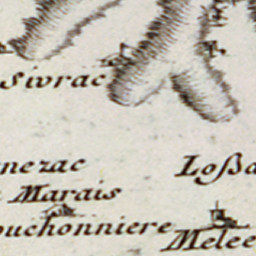 Sivrac
nezac
Loßa
Marais
ouchonniere
Melee